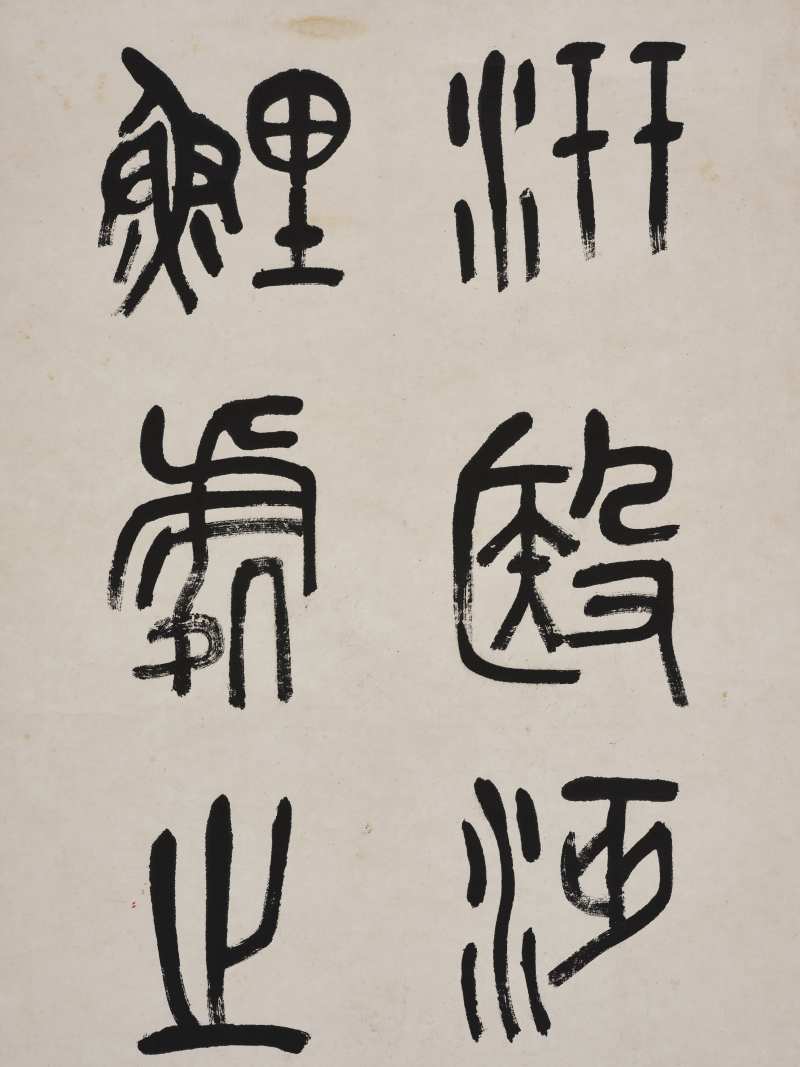 汧殹沔
鯉處之